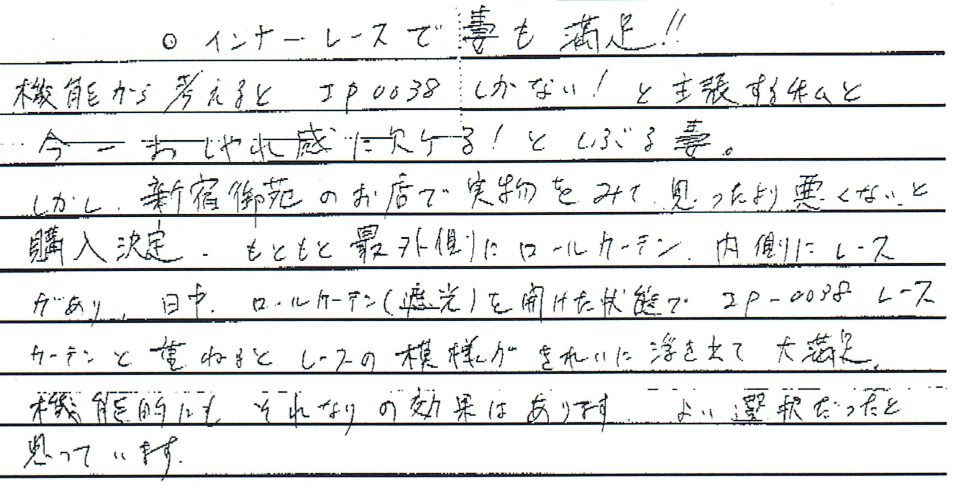 ◎ インナーレースで妻も満足!!
機能から考えると IP0038 しかない! と主張する私と
今一おしゃれ感に欠ケる! としぶる妻。
しかし、新宿御苑のお店で実物をみて、思ったより悪くないと
購入決定. もともと最外側にロールカーテン、内側にレース
があり、日中、ロールカーテン(遮光)を開けた状態で IP-0038 レース
カーテンと重ねるとレースの模様がきれいに浮き出て大満足.
機能的にもそれなりの効果はあります. よい選択だったと
思っています.